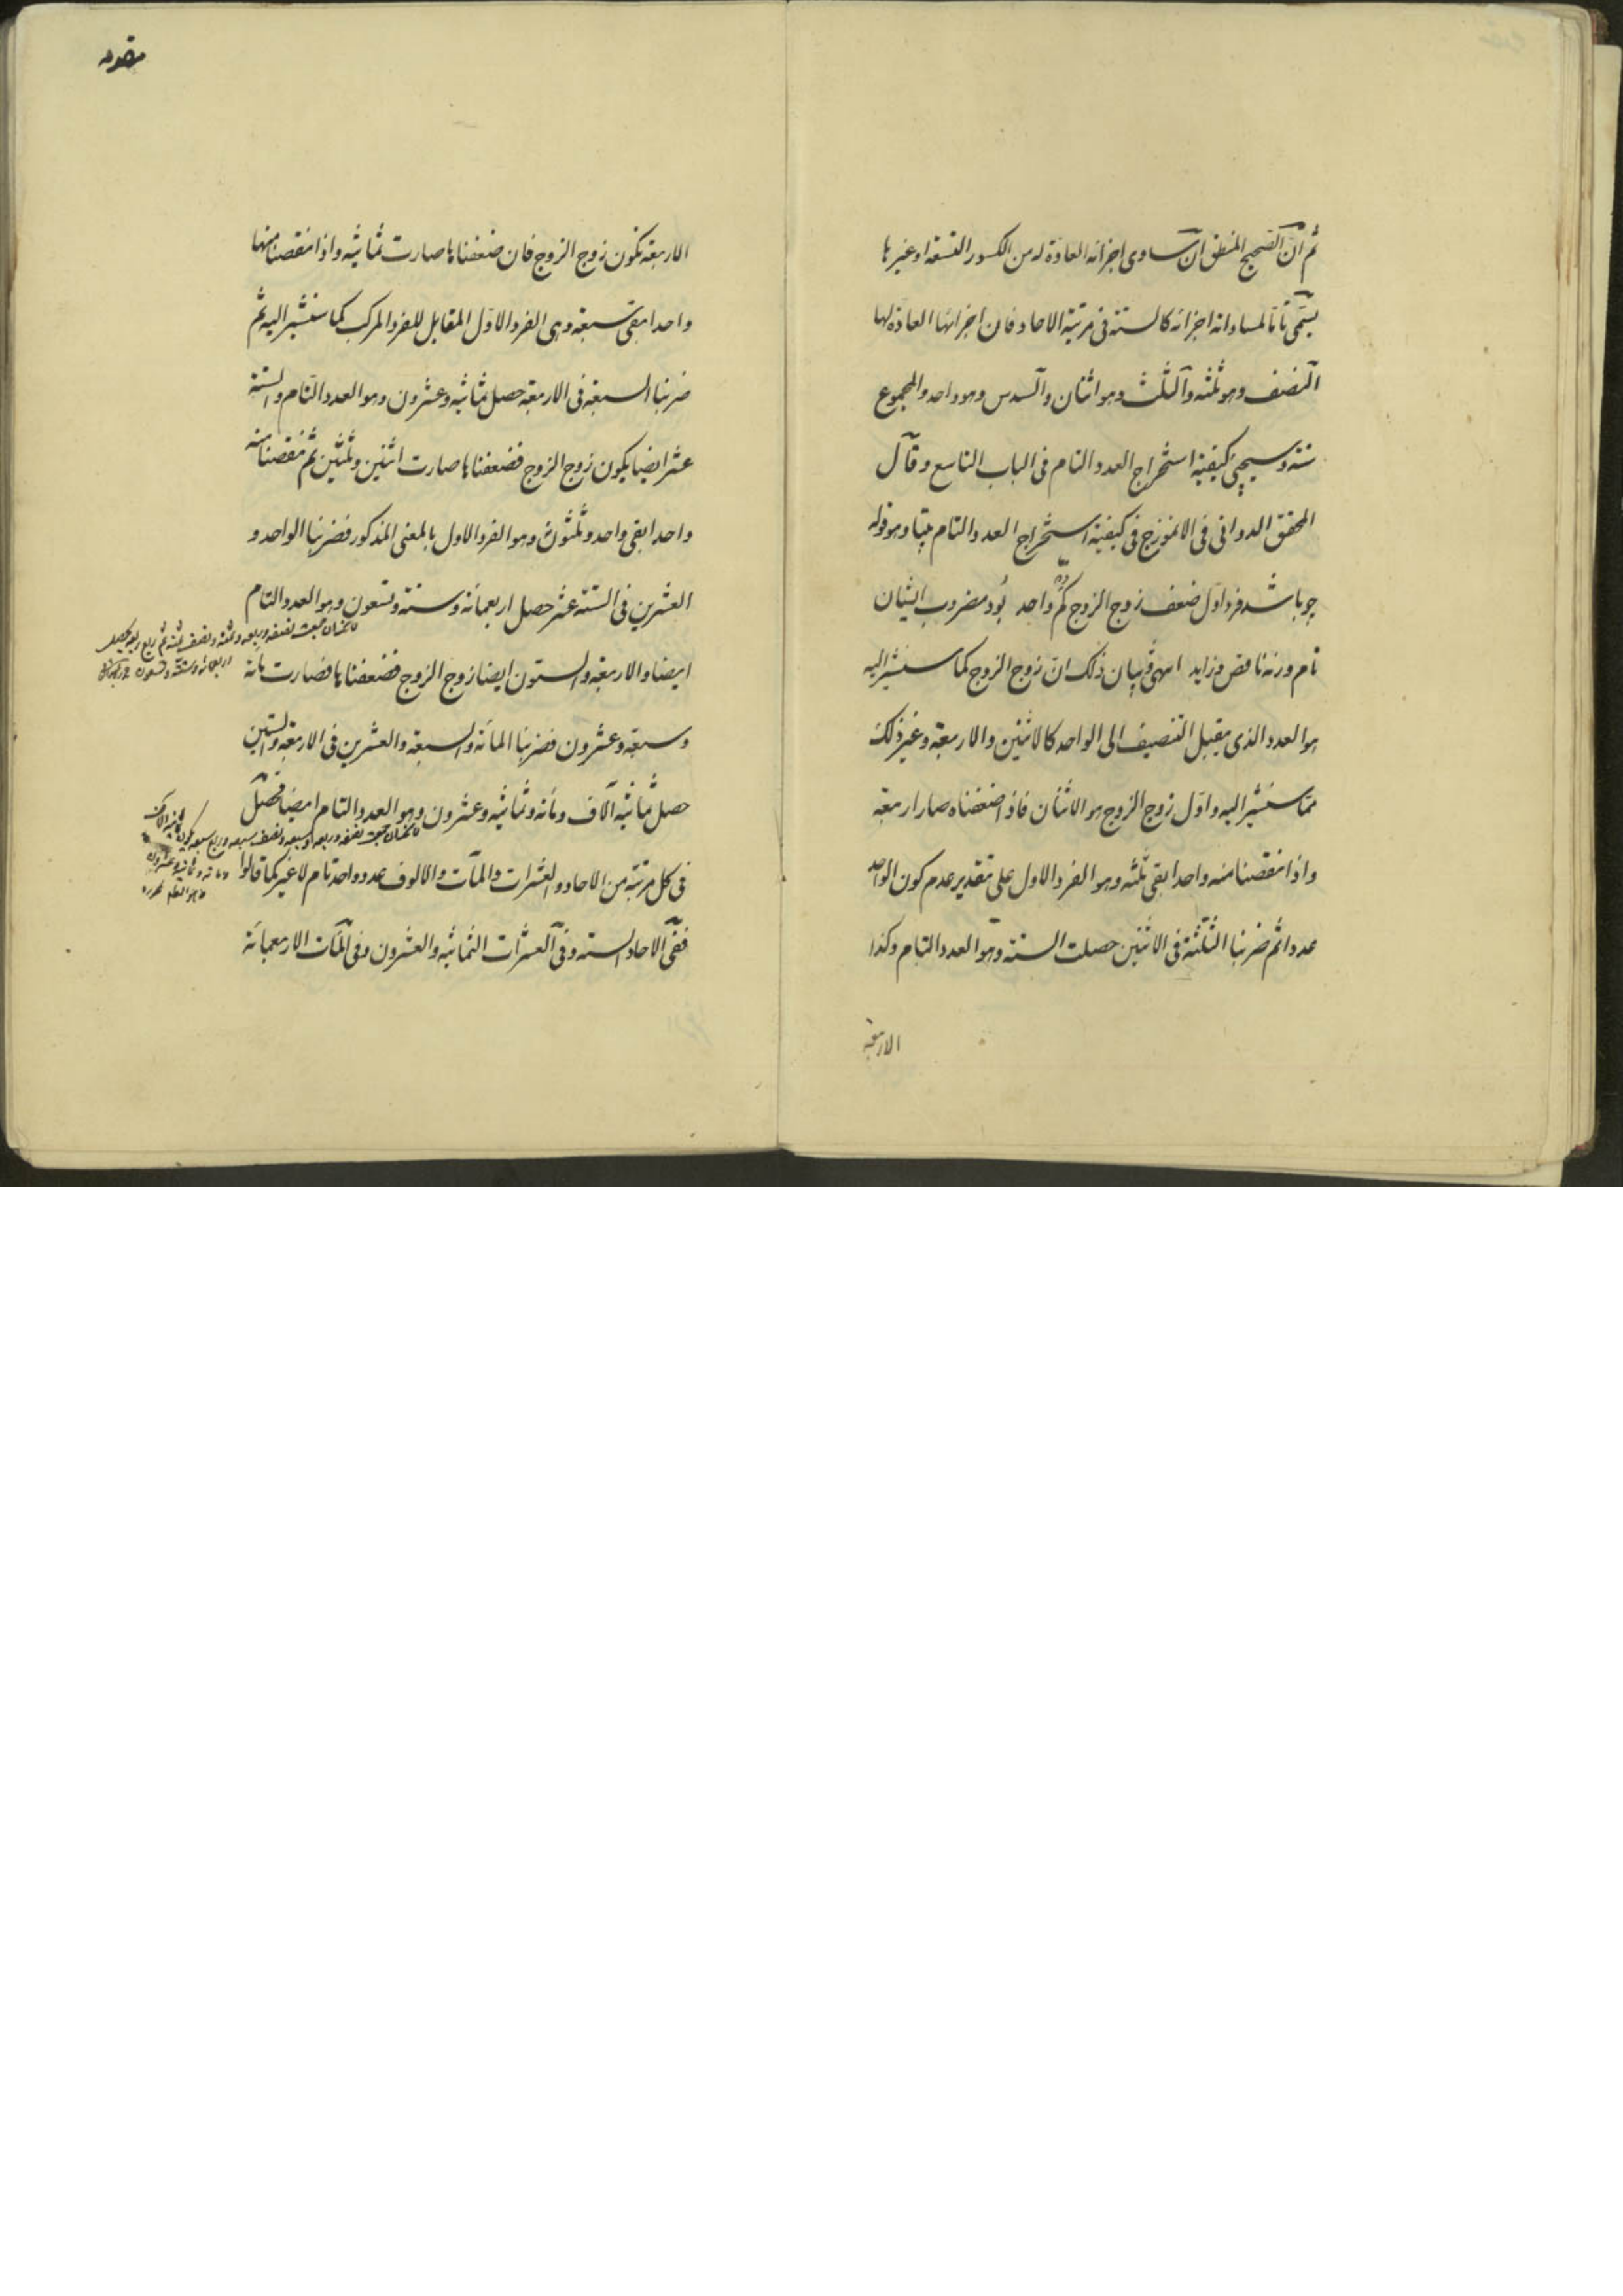 ثم ان الصحيح المنطق ان ساوى اجزائه العادة له من الكسور التسعة او غيرها
يسمى تاما لمساواته اجزائه كالستة فى مرتبة الاحاد فان اجزائها العادة لها
النصف وهو ثلثه والثلث وهو اثنان والسدس وهو واحد والمجموع
ستة وسيجئ كيفية استخراج العدد التام فى الباب التاسع وقال
المحقق الدوانى فى الانموزج فى كيفية استخراج العدد التام بيتا وهو قوله
چو باشد فرد اول ضعف زوج الزوج كم واحد بود مضروب ايشان
تام ورنه ناقص و زايد انتهى وبيان ذلك ان زوج الزوج كما سنشير اليه
هو العدد الذى يقبل التنصيف الى الواحد كالاثنين والاربعة وغير ذلك
مما سنشير اليه واول زوج الزوج هو الاثنان فاذا ضعفناه صار اربعة
واذا نقصنا منه واحدا بقى ثلثه وهو الفرد الاول على تقدير عدم كون الواحد
عددا ثم ضربنا الثلثة فى الاثنين حصلت الستة وهو العدد التام وكذا
الاربعة
مقدمه
الاربعة تكون زوج الزوج فان ضعفناها صارت ثمانيه واذا نقصنا منها
واحدا بقى سبعة وهى الفرد الاول المقابل للفرد المركب كما سنشير اليه ثم
ضربنا السبعة فى الاربعة حصل ثمانيه وعشرون وهو العدد التام والستة
عشر ايضا يكون زوج الزوج فضعفناها صارت اثنين وثلثين ثم نقصنا منه
واحدا بقى واحد وثلثون وهو الفرد الاول بالمعنى المذكور فضربنا الواحد و
العشرين فى الستة عشر حصل اربعمائة وستة وتسعون وهو العدد التام
ايضا والاربعة والستون ايضا زوج الزوج فضعفناها فصارت مائة
وسبعة وعشرون فضربنا المائة والسبعة والعشرين فى الاربعة والستين
حصل ثمانية آلاف ومائة وثمانيه وعشرون وهو العدد التام ايضا فحصل
فى كل مرتبة من الاحاد والعشرات والمآت والالوف عدد واحد تام لا غير كما قالوا
ففى الاحاد الستة وفى العشرات الثمانيه والعشرون وفى المآت الاربعمائة
نصفه وربعه وثمنه ونصف ثمنه ثم ربع ربعه يحصل
اربعمائة وستة وتسعون
نصفه وربعه ونصف سبعه وربع سبعه